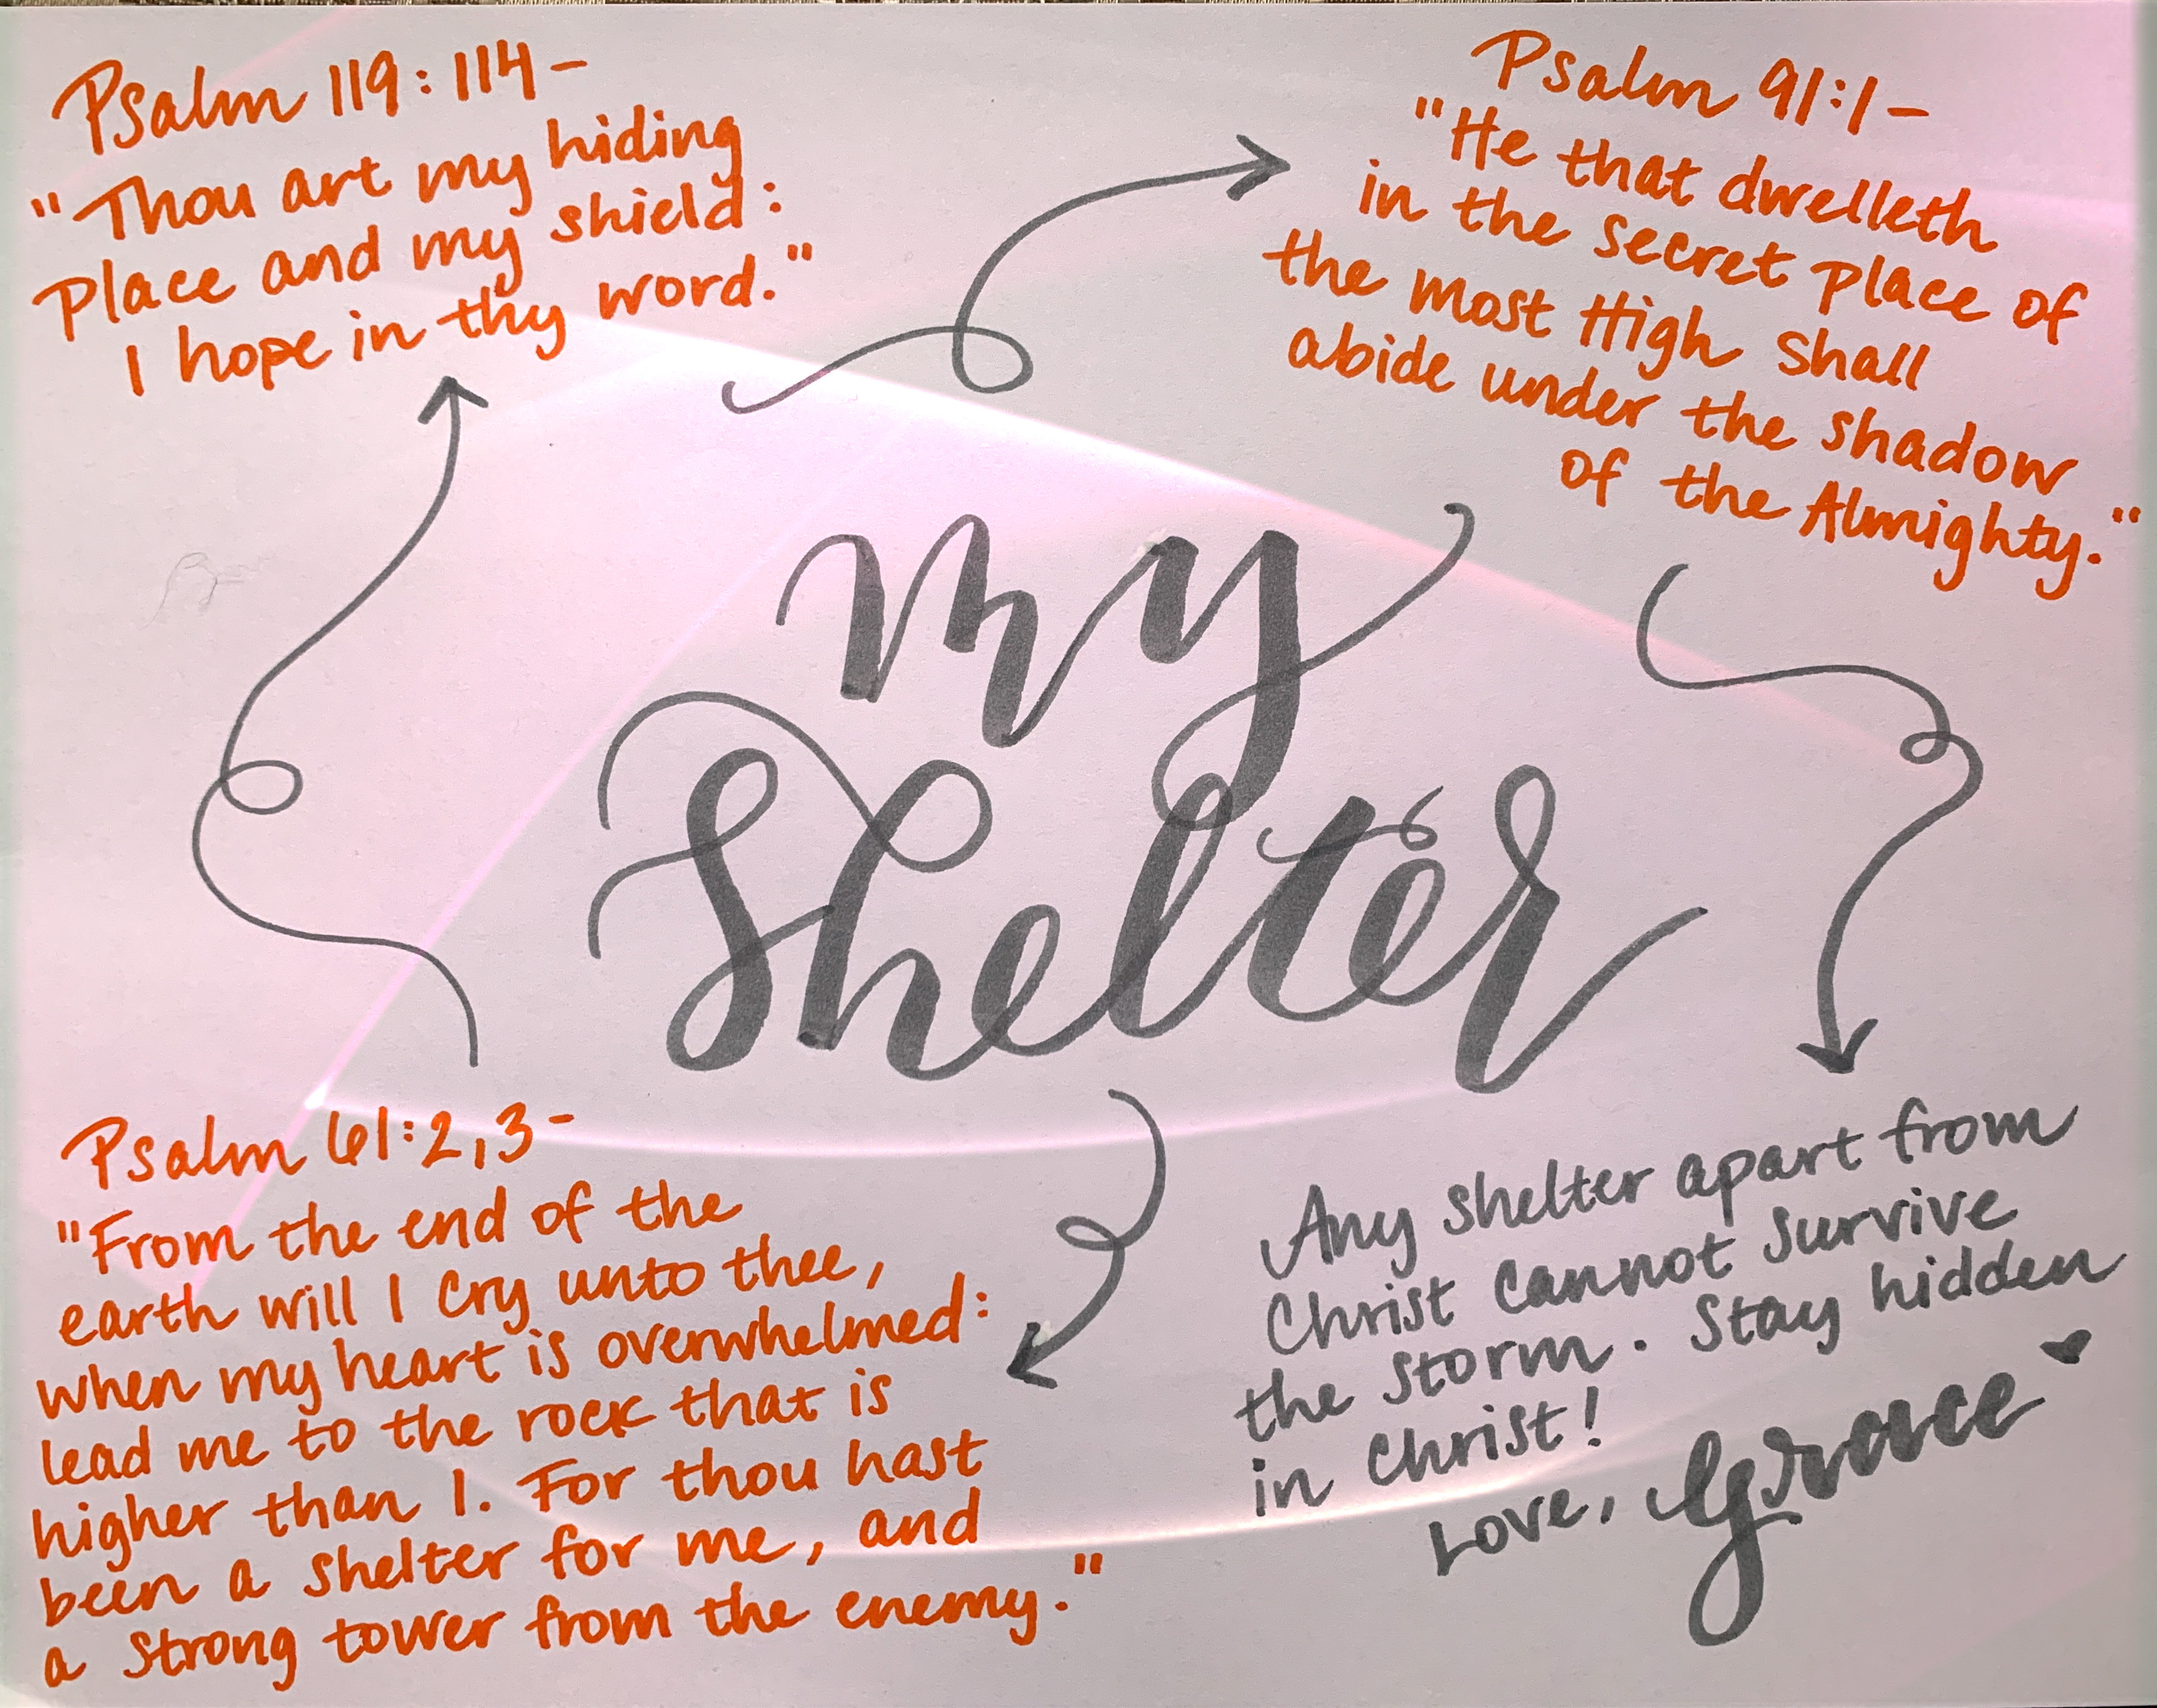 Psalm 119:114-
"Thou art my hiding
place and my shield:
I hope in thy word."
Psalm 91:1-
"He that dwelleth
in the secret place of
the most High shall
abide under the shadow
of the Almighty."
my
Shelter
Psalm 61:2,3-
"From the end of the
earth will I cry unto thee,
when my heart is overwhelmed:
lead me to the rock that is
higher than I. For thou hast
been a shelter for me, and
a strong tower from the enemy."
Any shelter apart from
Christ cannot survive
the storm. Stay hidden
in Christ!
Love, Grace